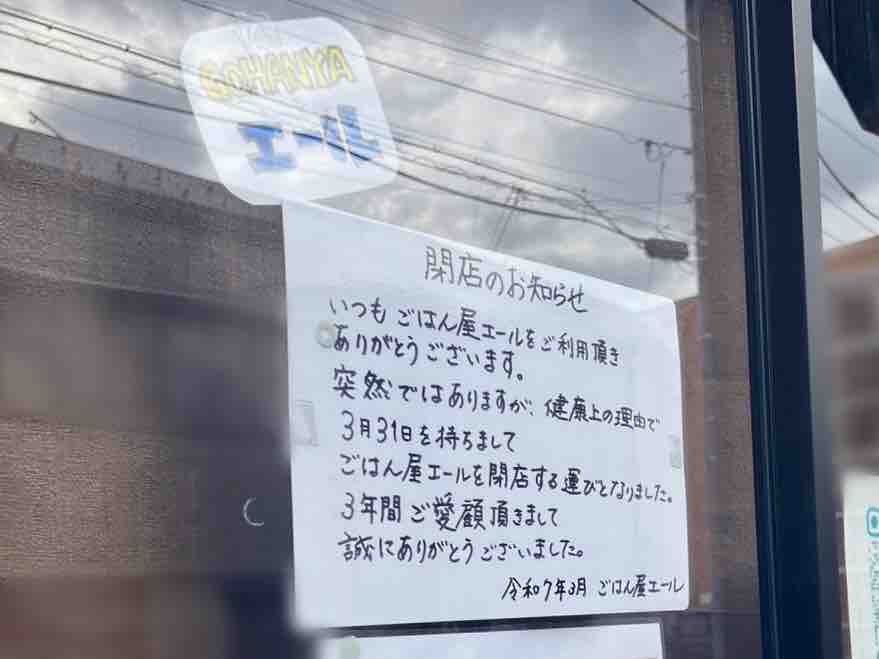 GOHANYA
エール
閉店のお知らせ
いつもごはん屋エールをご利用頂き
ありがとうございます。
突然ではありますが、健康上の理由で
3月31日を持ちまして
ごはん屋エールを閉店する運びとなりました。
3年間ご愛顧頂きまして
誠にありがとうございました。
令和7年3月 ごはん屋エール